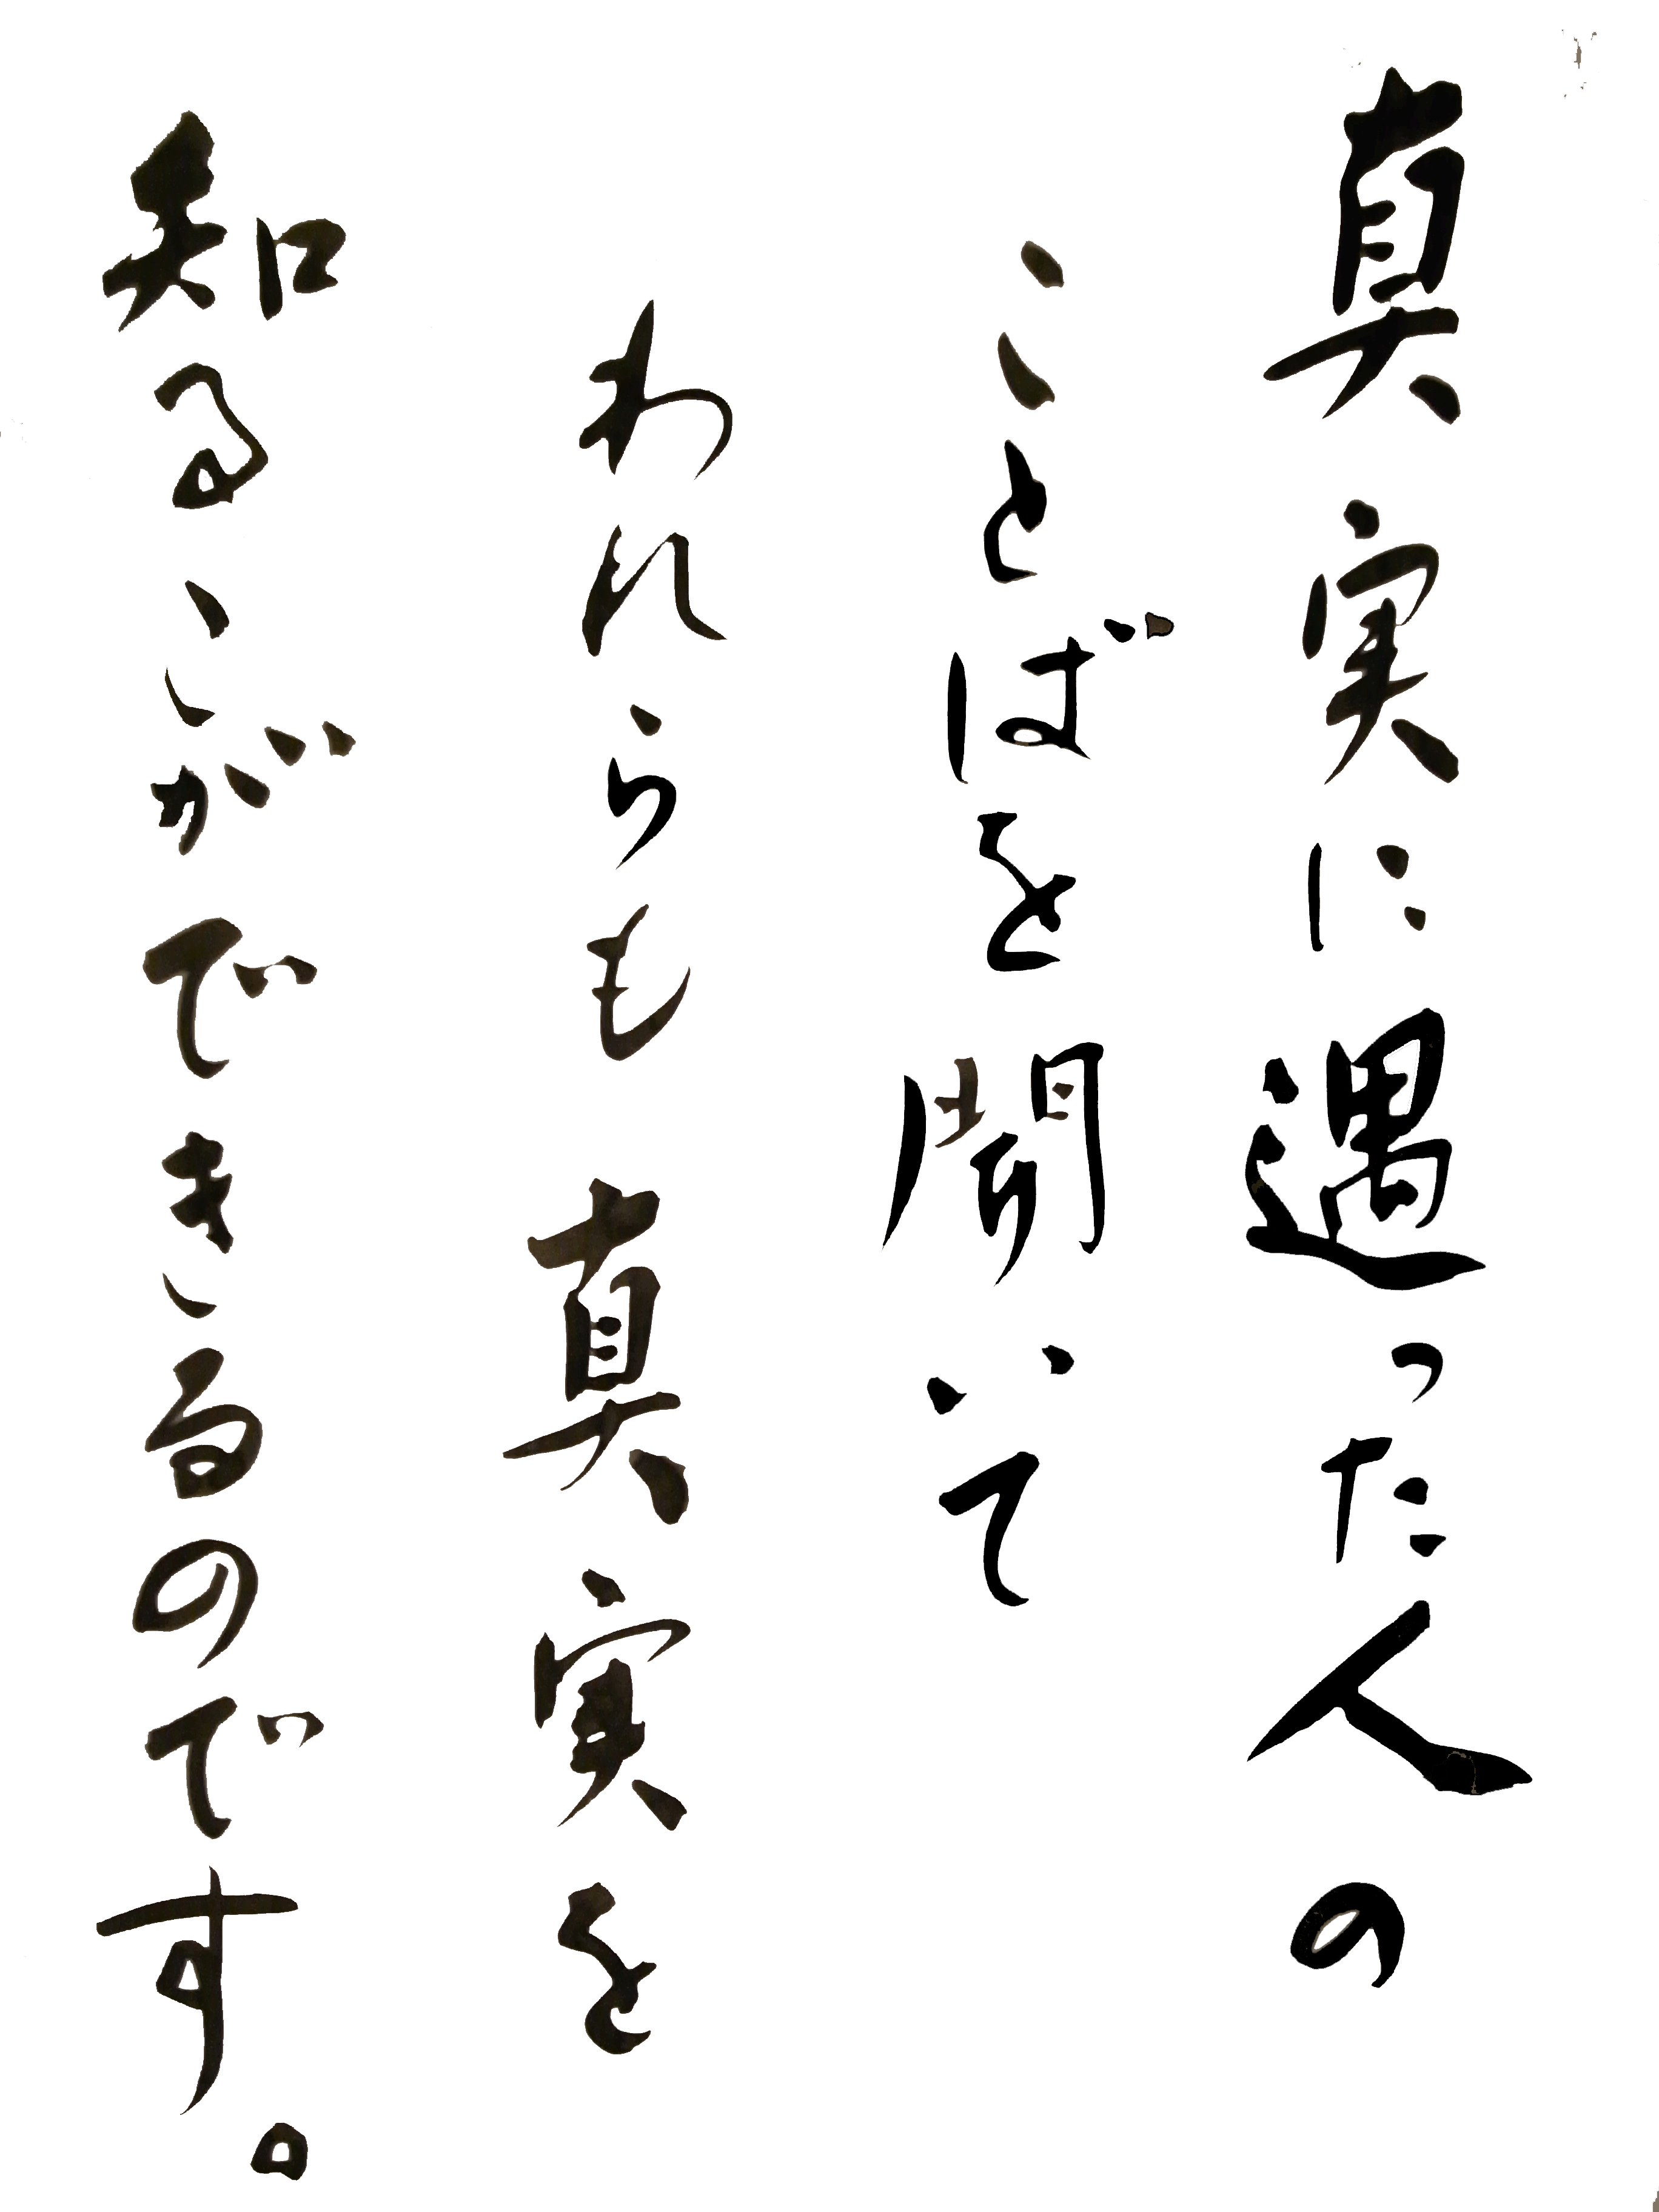 真実に遇った人の
ことばを聞いて
われらも 真実を
知るこができるのです。